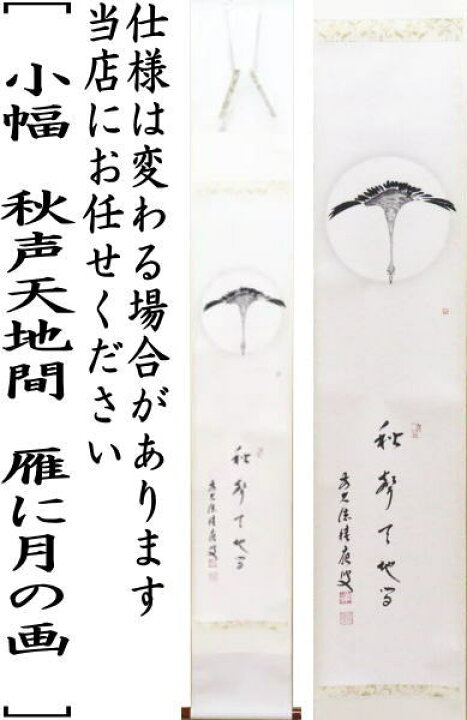 仕様は変わる場合があります
当店にお任せください
[ 小幅 秋声天地間 雁に月の画 ]
秋聲天地間
秋聲天地間